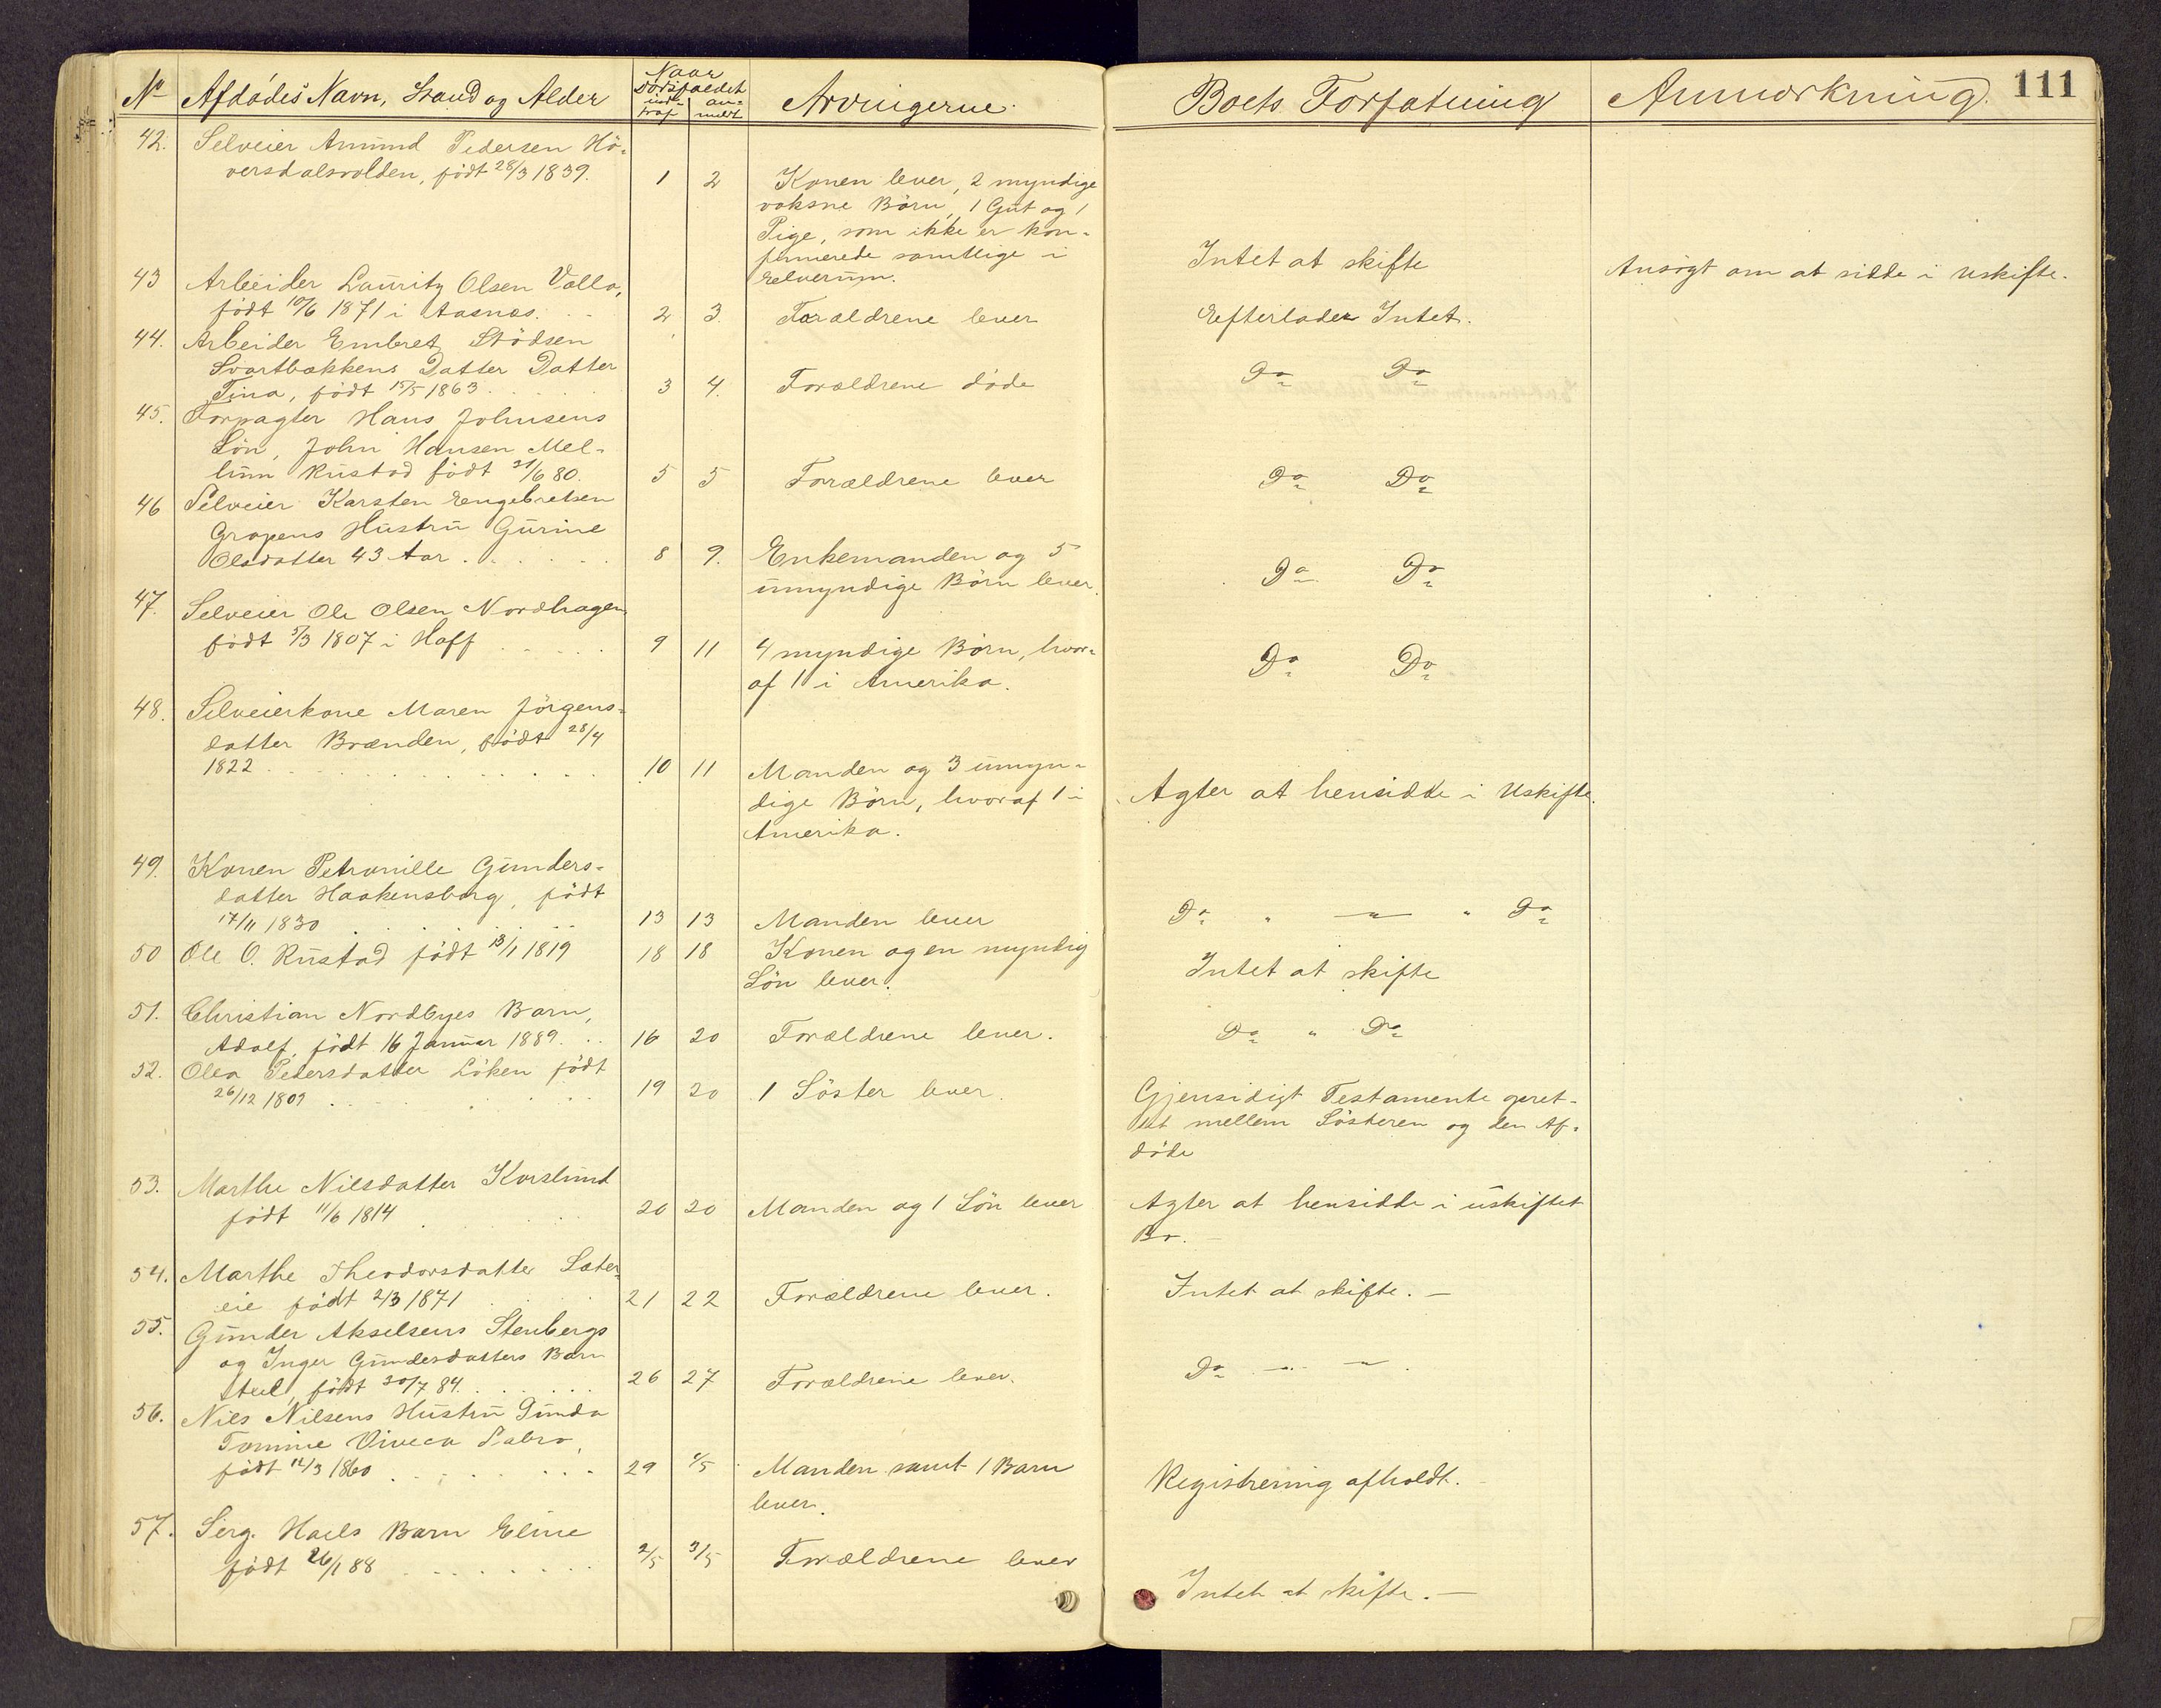 No Afdødes Navn, Stand og Alder Naar Dödsfaldet indtraf anmeldt Arvingerne. Boets Forfatning Anmærkning. 111
42. Selveier Amund Pedersen Hö-
versdalsvolden, födt 28/3 1839. 1 2 Konen lever, 2 myndige
voksne Börn, 1 Gut og 1
Pige, som ikke er kon-
firmerede samtlige i
Elverum. Intet at skifte Ansögt om at sidde i Uskifte.
43 Arbeider Lauritz Olsen Valla,
födt 10/6 1871 i Aasnæs. 2 3. Forældrene lever Efterlader Intet.
44. Arbeider Embret Stödsen
Svartbækkens Datter Datter
Tina, födt 15/5 1863 3 4. Forældrene döde Do Do
45. Forpagter Hans Johnsens
Sön, John Hansen Mel-
lum Rustad födt 21/6 80. 5 5 Forældrene lever Do Do
46 Selveier Karsten Engebretsen
Gropens Hustru Gurine
Olsdatter 43 Aar 8 9. Enkemanden og 5
umyndige Börn lever. Do Do
47. Selveier Ole Olsen Nordhagen
födt 5/3 1807 i Hoff 9 11 4 myndige Börn, hvor-
af 1 i Amerika. Do Do
48. Selveierkone Maren Jörgens-
datter Brænden, födt 28/4
1822 10 11 Manden og 3 umyn-
dige Börn, hvoraf 1 i
Amerika. Agter at hensidde i Uskifte.
49. Konen Petronille Gunders-
datter Haakensborg, födt
17/11 1830 13 13 Manden lever Do " — " Do
50 Ole O. Rustad födt 13/1 1819 18 18 Konen og en myndig
Sön lever. Intet at skifte
51. Christian Nordbyes Barn,
Adolf, födt 16 Januar 1889. 16 20 Forældrene lever. Do " Do
52. Olea Pedersdatter Löken födt
26/12 1809 19 20 1 Söster lever. Gjensidigt Testamente opret-
tet mellem Sösteren og den Af-
döde
53. Marthe Nilsdatter Korslund
födt 11/6 1814 20 20 Manden og 1 Sön lever Agter at hensidde i uskiftet
Bo. —
54. Marthe Theodorsdatter Sæter-
eie födt 2/3 1871 21 22 Forældrene lever. Intet at skifte. —
55. Gunder Akselsens Stenbergs
og Inger Gundersdatters Barn
födt 30/7 84. 26 27 Forældrene lever. Do — " —
56. Nils Nilsens Hustru Gunda
Tomine Viveca Sabro,
födt 12/3 1860 29 1/5 Manden samt 1 Barn
lever. Registrering afholdt.
57. Serg. Hoels Barn Eline
födt 26/1 88 2/5 3/5 Forældrene lever Intet at skifte. —